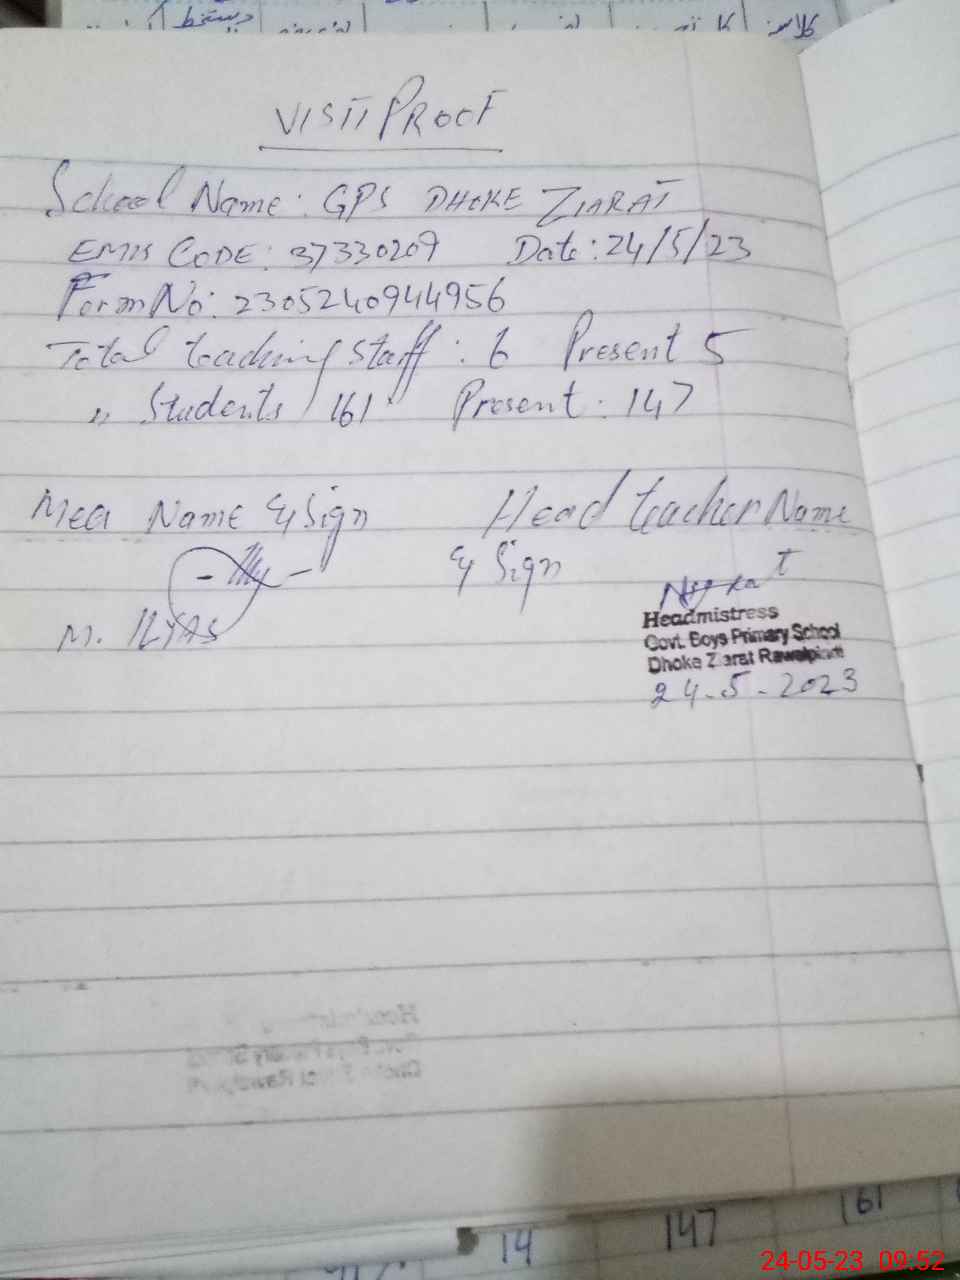 کلاس
دستخط
VISIT PROOF
School Name: GPS DHOKE ZIARAT
EMIS CODE: 37330209 Date: 24/5/23
Form No: 2305240944956
Total teaching staff: 6 Present 5
" Students 161 Present: 147
Mea Name & Sign Head teacher Name
& Sign
M. ILYAS
Headmistress
Govt. Boys Primary School
Dhoke Ziarat Rawalpindi
24-5-2023
14 147 161
24-05-23 09:52